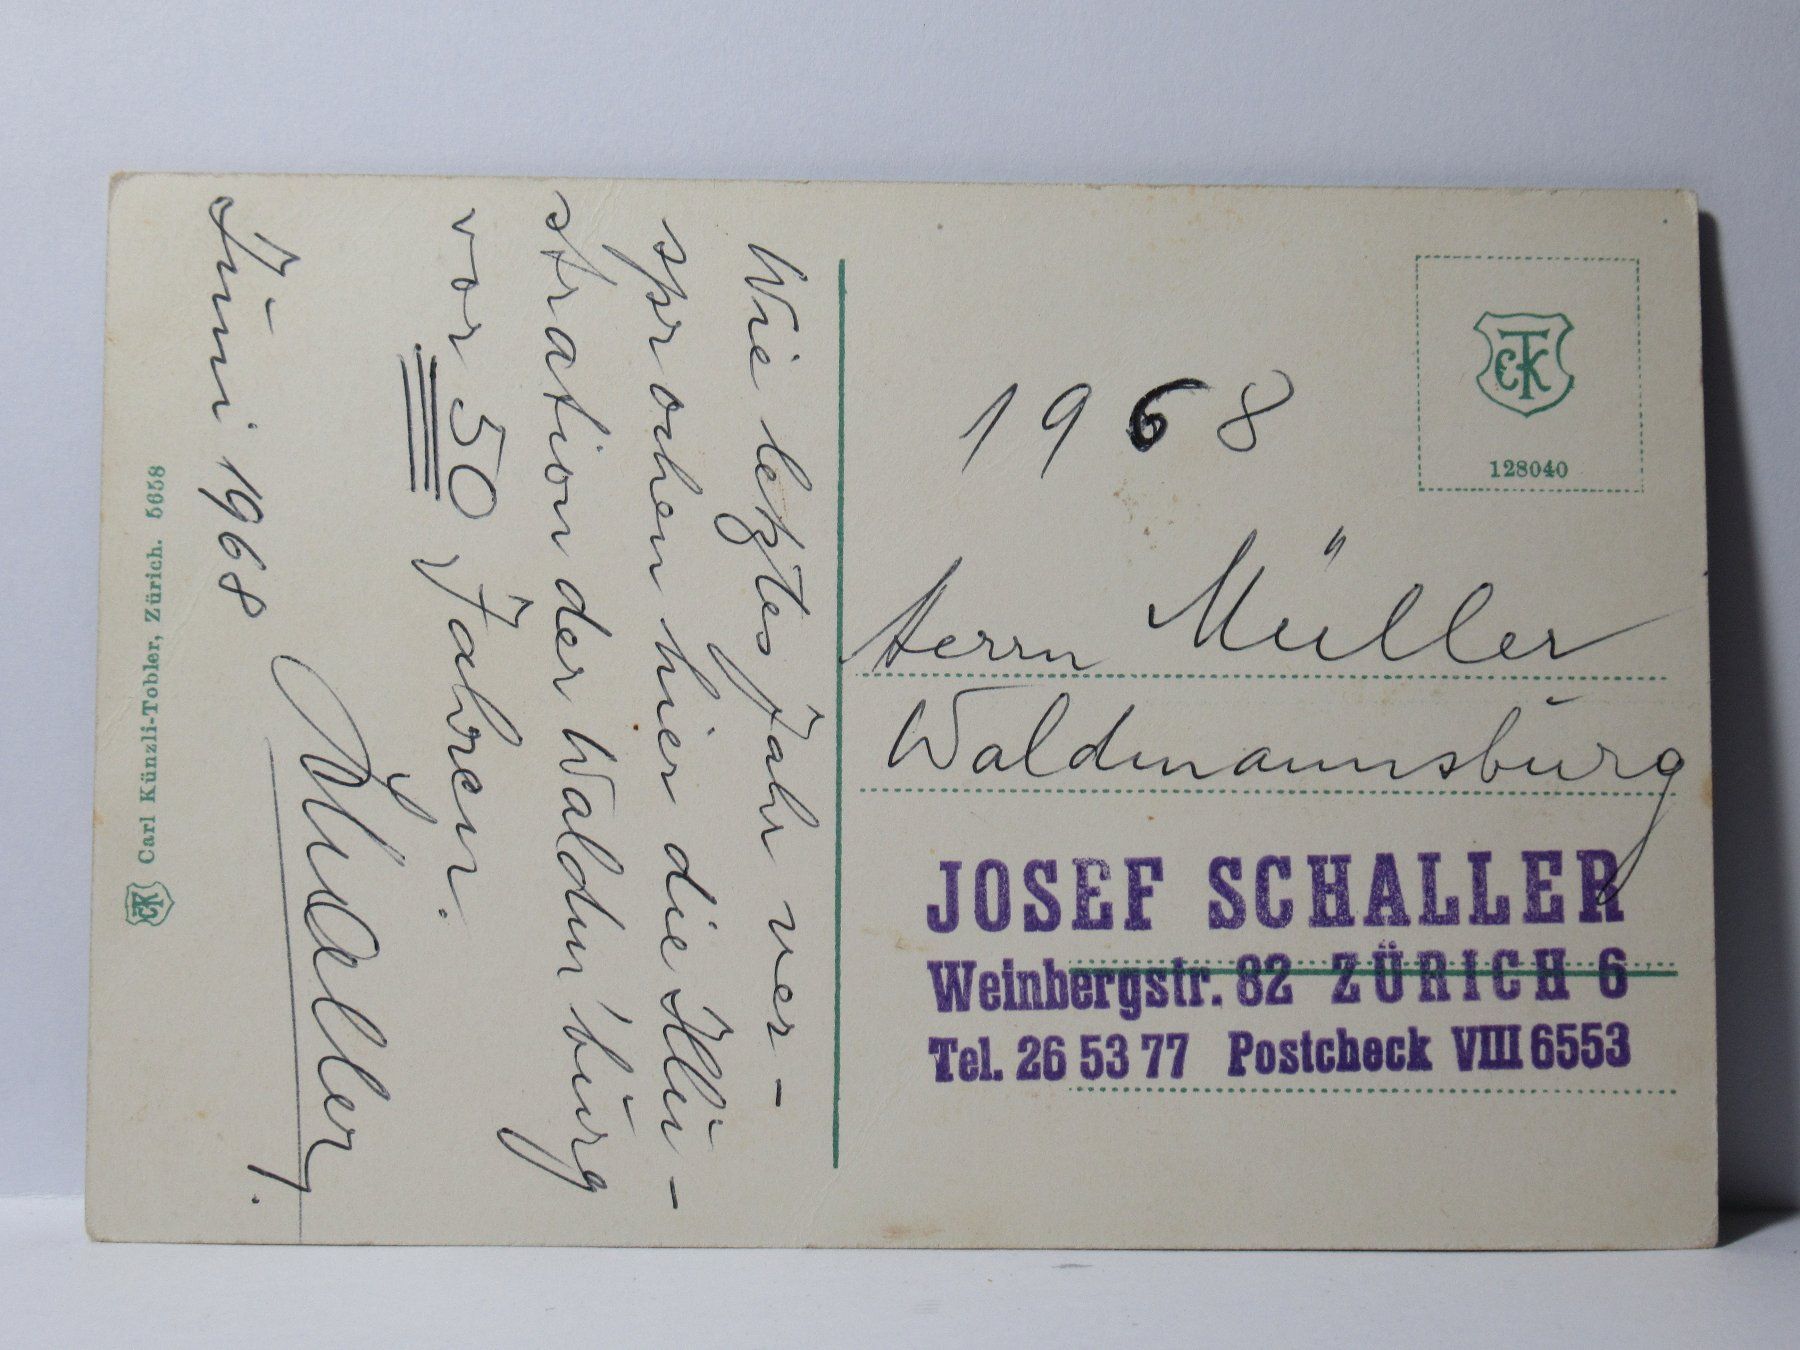 Wie letztes Jahr ver-
sprochen hier die Illu-
stration der Waldm'burg
vor 50 Jahren.
Juni 1968
Schaller.
Carl Künzli-Tobler, Zürich. 5658
CTK
CTK
128040
1968
Herrn Müller
Waldmannsburg
JOSEF SCHALLER
Weinbergstr. 82 ZÜRICH 6
Tel. 26 53 77 Postcheck VIII 6553